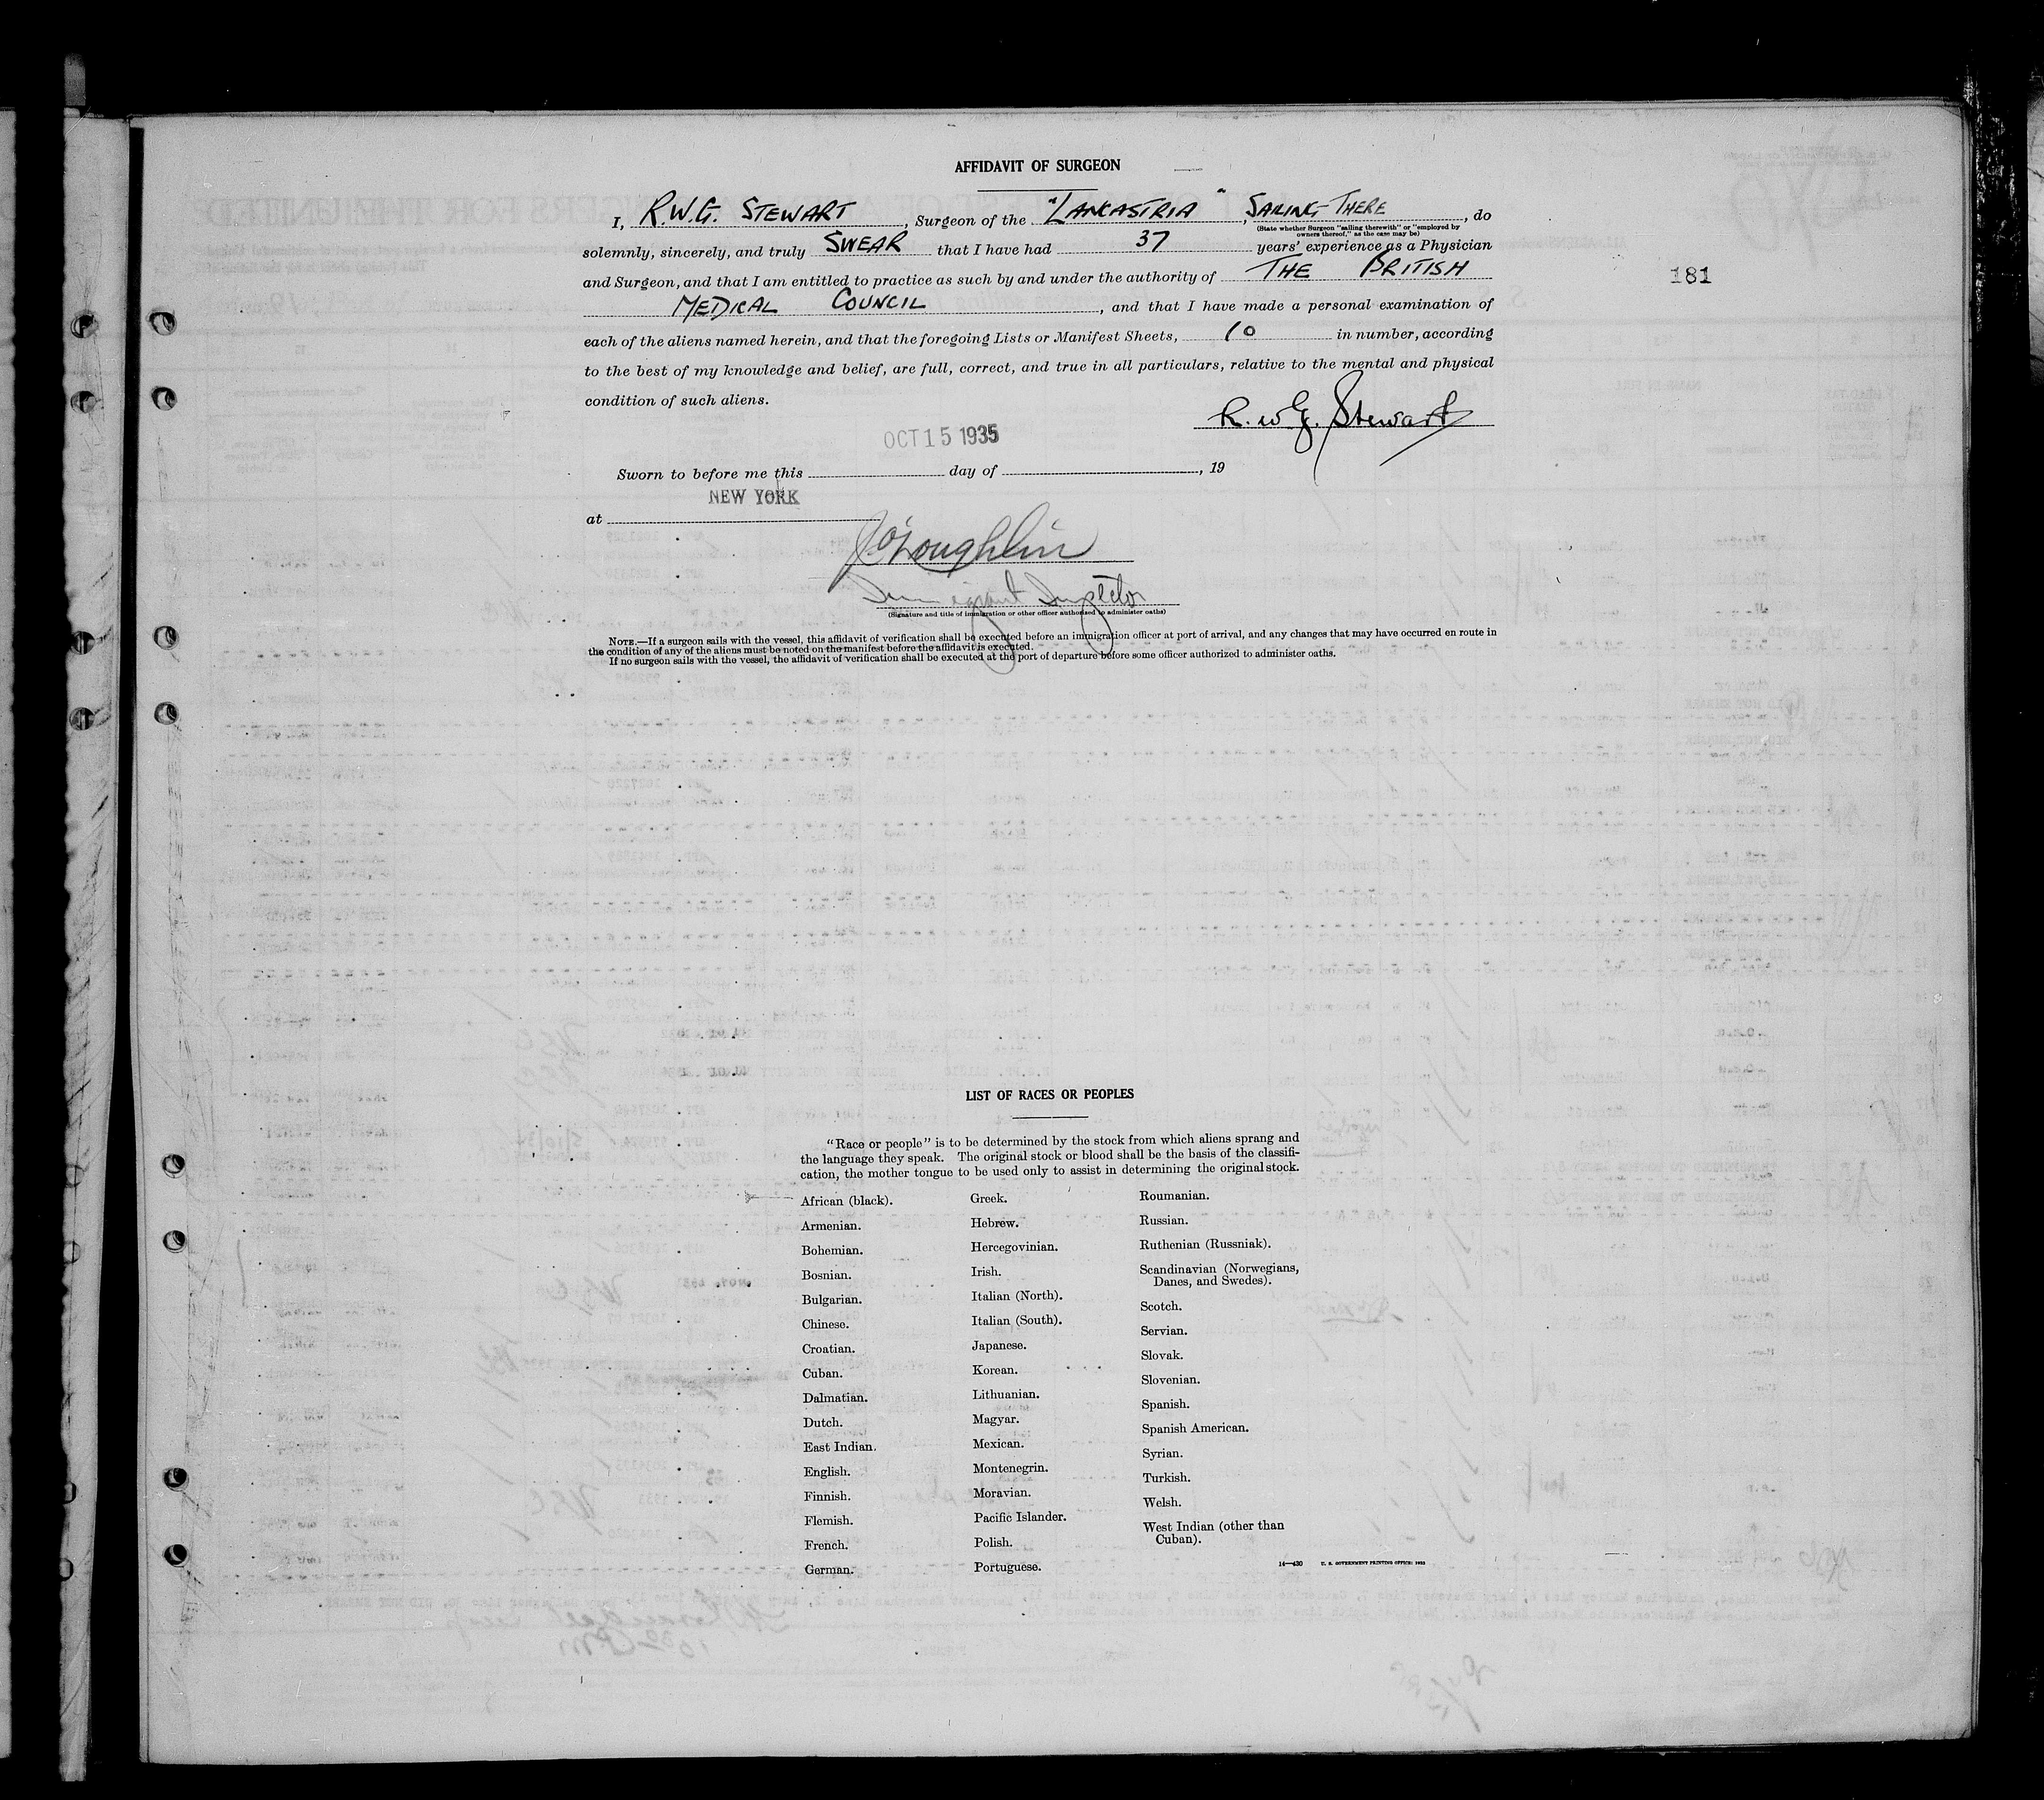 AFFIDAVIT OF SURGEON
I, R.W.G. STEWART, Surgeon of the "LANCASTRIA", SAILING THERE, do
(State whether Surgeon "sailing therewith" or "employed by
owners thereof," as the case may be)
solemnly, sincerely, and truly SWEAR that I have had 37 years' experience as a Physician
and Surgeon, and that I am entitled to practice as such by and under the authority of THE BRITISH
MEDICAL COUNCIL, and that I have made a personal examination of
181
each of the aliens named herein, and that the foregoing Lists or Manifest Sheets, 10 in number, according
to the best of my knowledge and belief, are full, correct, and true in all particulars, relative to the mental and physical
condition of such aliens.
R. W. G. Stewart
OCT 15 1935
Sworn to before me this day of , 19
NEW YORK
at
J. O'Loughlin
Immigrant Inspector
(Signature and title of immigration or other officer authorized to administer oaths)
NOTE.—If a surgeon sails with the vessel, this affidavit of verification shall be executed before an immigration officer at port of arrival, and any changes that may have occurred en route in
the condition of any of the aliens must be noted on the manifest before the affidavit is executed.
If no surgeon sails with the vessel, the affidavit of verification shall be executed at the port of departure before some officer authorized to administer oaths.
LIST OF RACES OR PEOPLES
"Race or people" is to be determined by the stock from which aliens sprang and
the language they speak. The original stock or blood shall be the basis of the classifi-
cation, the mother tongue to be used only to assist in determining the original stock.
African (black).
Armenian.
Bohemian.
Bosnian.
Bulgarian.
Chinese.
Croatian.
Cuban.
Dalmatian.
Dutch.
East Indian.
English.
Finnish.
Flemish.
French.
German.
Greek.
Hebrew.
Hercegovinian.
Irish.
Italian (North).
Italian (South).
Japanese.
Korean.
Lithuanian.
Magyar.
Mexican.
Montenegrin.
Moravian.
Pacific Islander.
Polish.
Portuguese.
Roumanian.
Russian.
Ruthenian (Russniak).
Scandinavian (Norwegians,
Danes, and Swedes).
Scotch.
Servian.
Slovak.
Slovenian.
Spanish.
Spanish American.
Syrian.
Turkish.
Welsh.
West Indian (other than
Cuban).
14—430 U. S. GOVERNMENT PRINTING OFFICE: